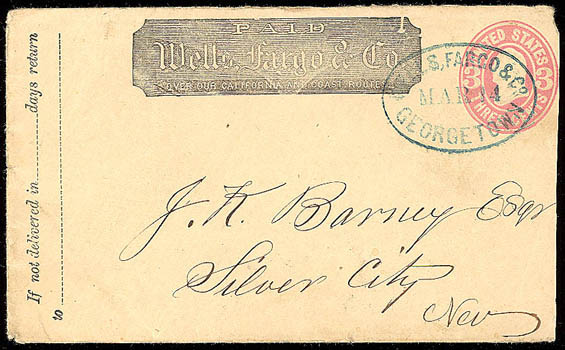 PAID
Wells, Fargo & Co
OVER OUR CALIFORNIA AND COAST ROUTES
WELLS, FARGO & Co
MAR 14
GEORGETOWN
UNITED STATES
3 3
THREE
J. K. Barney Esqr
Silver City
Nev
If not delivered in days return
to